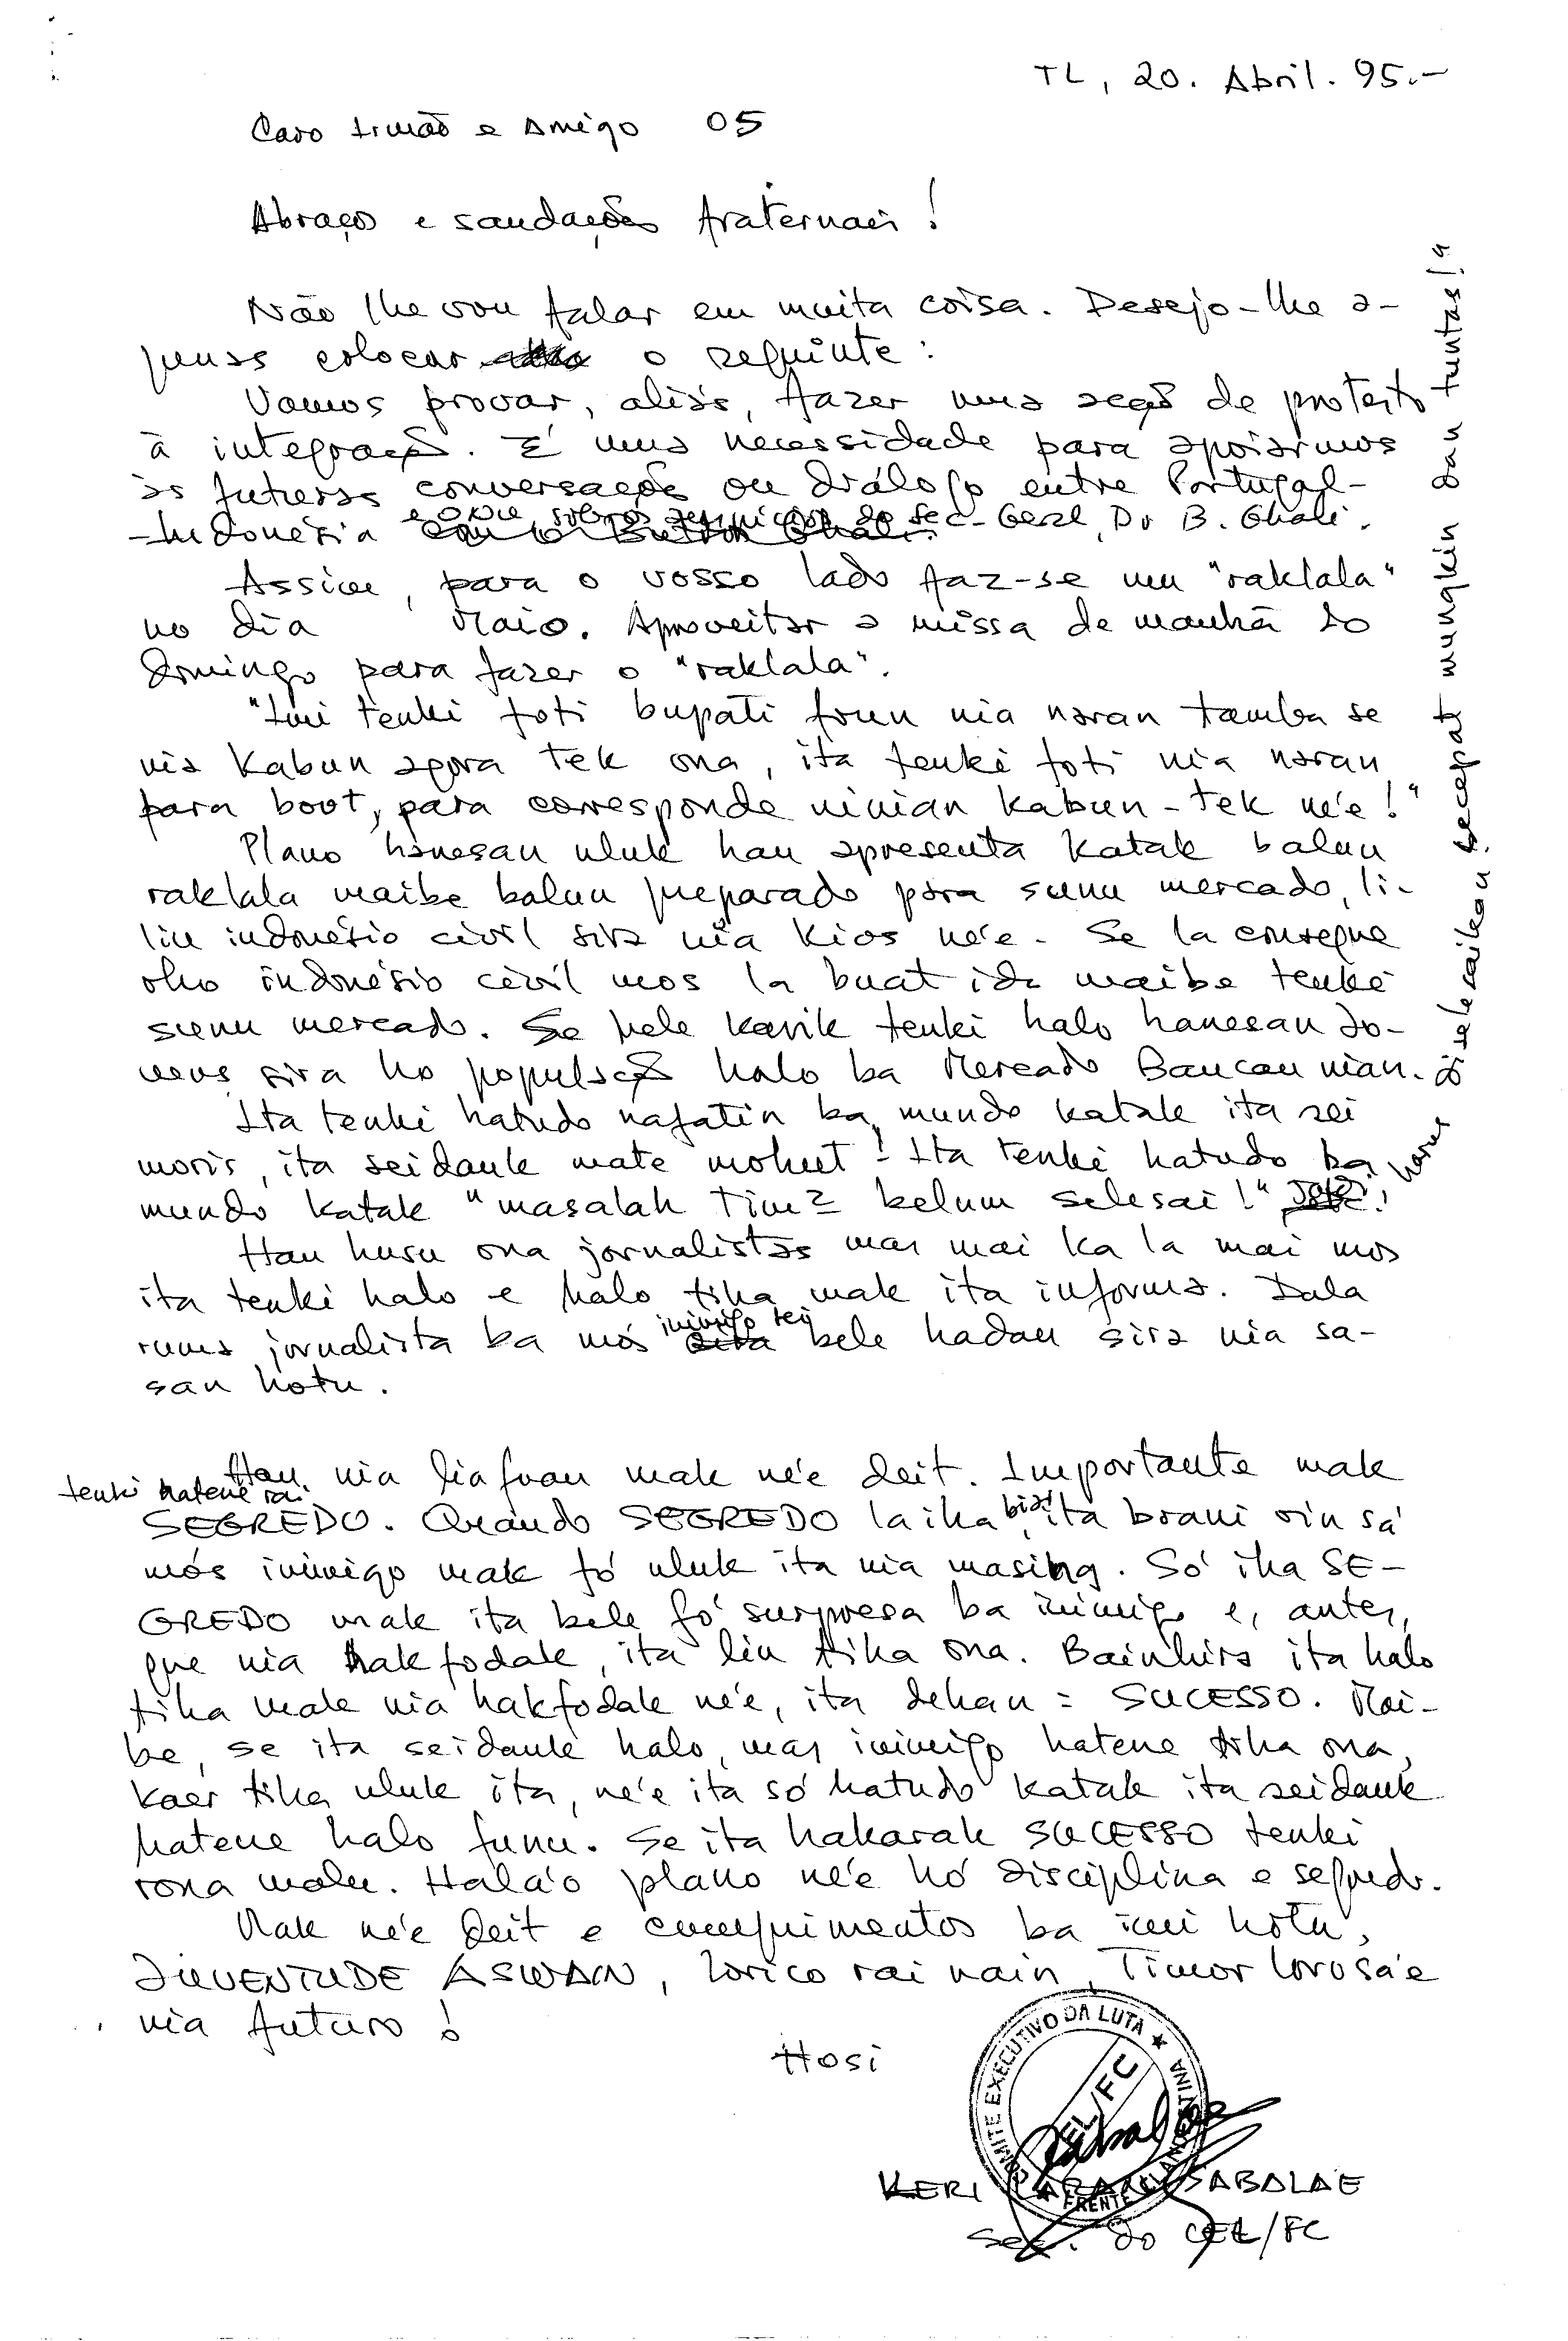 TL, 20. Abril. 95.-
Caro Irmão e Amigo 05
Abraços e saudações fraternais!
Não lhe vou falar em muita coisa. Desejo-lhe a-
penas colocar o seguinte:
Vamos provar, aliás, fazer uma acção de protesto
à integração. É uma necessidade para apoiarmos
às futuras conversações ou diálogo entre Portugal-
-Indonésia e ONU sobre os auspícios do Sec-Geral, Dr B. Ghali.
Assim, para o vosso lado faz-se um "raklala"
no dia Maio. Aproveitar a missa de manhã do
Domingo para fazer o "raklala".
"Imi tenki foti bupati foun nia naran tamba se
nia kabun agora tek ona, ita tenki foti nia naran
para boot, para corresponde ninian kabun-tek ne'e!"
Plano hanesan uluk hau apresenta katak balun
raklala maibe balun preparado para sunu mercado, li-
liu indonésio civil sira nia kios ne'e. Se la consegue
oho indonésio civil mos la buat ida maibe tenke
sunu mercado. Se bele karik tenki halo hanesan Jo-
vens sira ho população halo ba Mercado Baucau nian.
Ita tenki hatudo nafatin ba mundo katak ita sei
moris, ita seidauk mate mohut! Ita tenki hatudo ba
mundo katak "masalah Tim2 belum selesai!" Jadi, harus diselesaikan secepat mungkin dan tuntas!"
Hau husu ona jornalistas mas mai ka la mai mos
ita tenki halo e halo tiha mak ita informa. Dala
ruma jornalista ba mós inimigo sei bele hadau sira nia sa-
san hotu.
Hau nia liafuan mak ne'e deit. Importante mak
tenki hatene rai
SEGREDO. Quando SEGREDO la iha, ita brani oin sá
mós inimigo mak fó uluk ita nia masing. Só iha SE-
GREDO mak ita bele fó surpresa ba inimigo e, antes,
que nia hakfodak, ita liu tiha ona. Bainhira ita halo
tiha mak nia hakfodak ne'e, ita dehan = SUCESSO. Mai-
be, se ita seidauk halo, mas inimigo hatene tiha ona,
kaer tiha uluk ita, ne'e ita só hatudo katak ita seidauk
hatene halo funu. Se ita hakarak SUCESSO tenki
rona malu. Hala'o plano ne'e hó disciplina e segredo.
Mak ne'e deit e cumprimentos ba imi hotu,
JUVENTUDE ASWAIN, lorico rai nain, Timor lorosa'e
nia futuro!
Hosi
COMITE EXECUTIVO DA LUTA ★ FRENTE CLANDESTINA
CEL/FC
KERI LARAN SABALAE
Sec. do CEL/FC